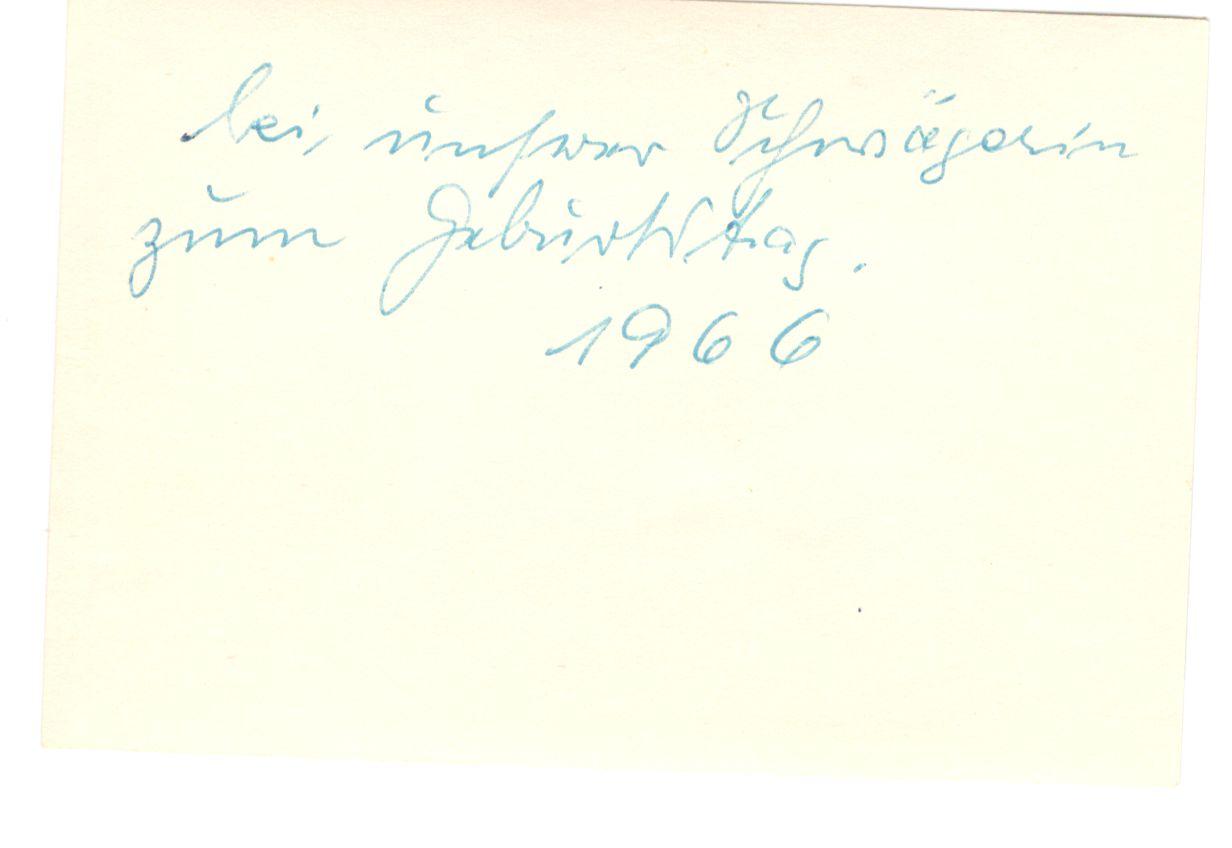 bei unserer Schwägerin
zum Geburtstag.
1966